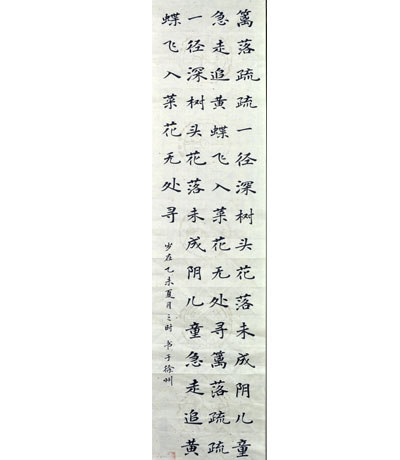 篱落疏疏一径深树头花落未成阴儿童
急走追黄蝶飞入菜花无处寻篱落疏疏
一径深树头花落未成阴儿童急走追黄
蝶飞入菜花无处寻
岁在乙未夏月之时 书于徐州